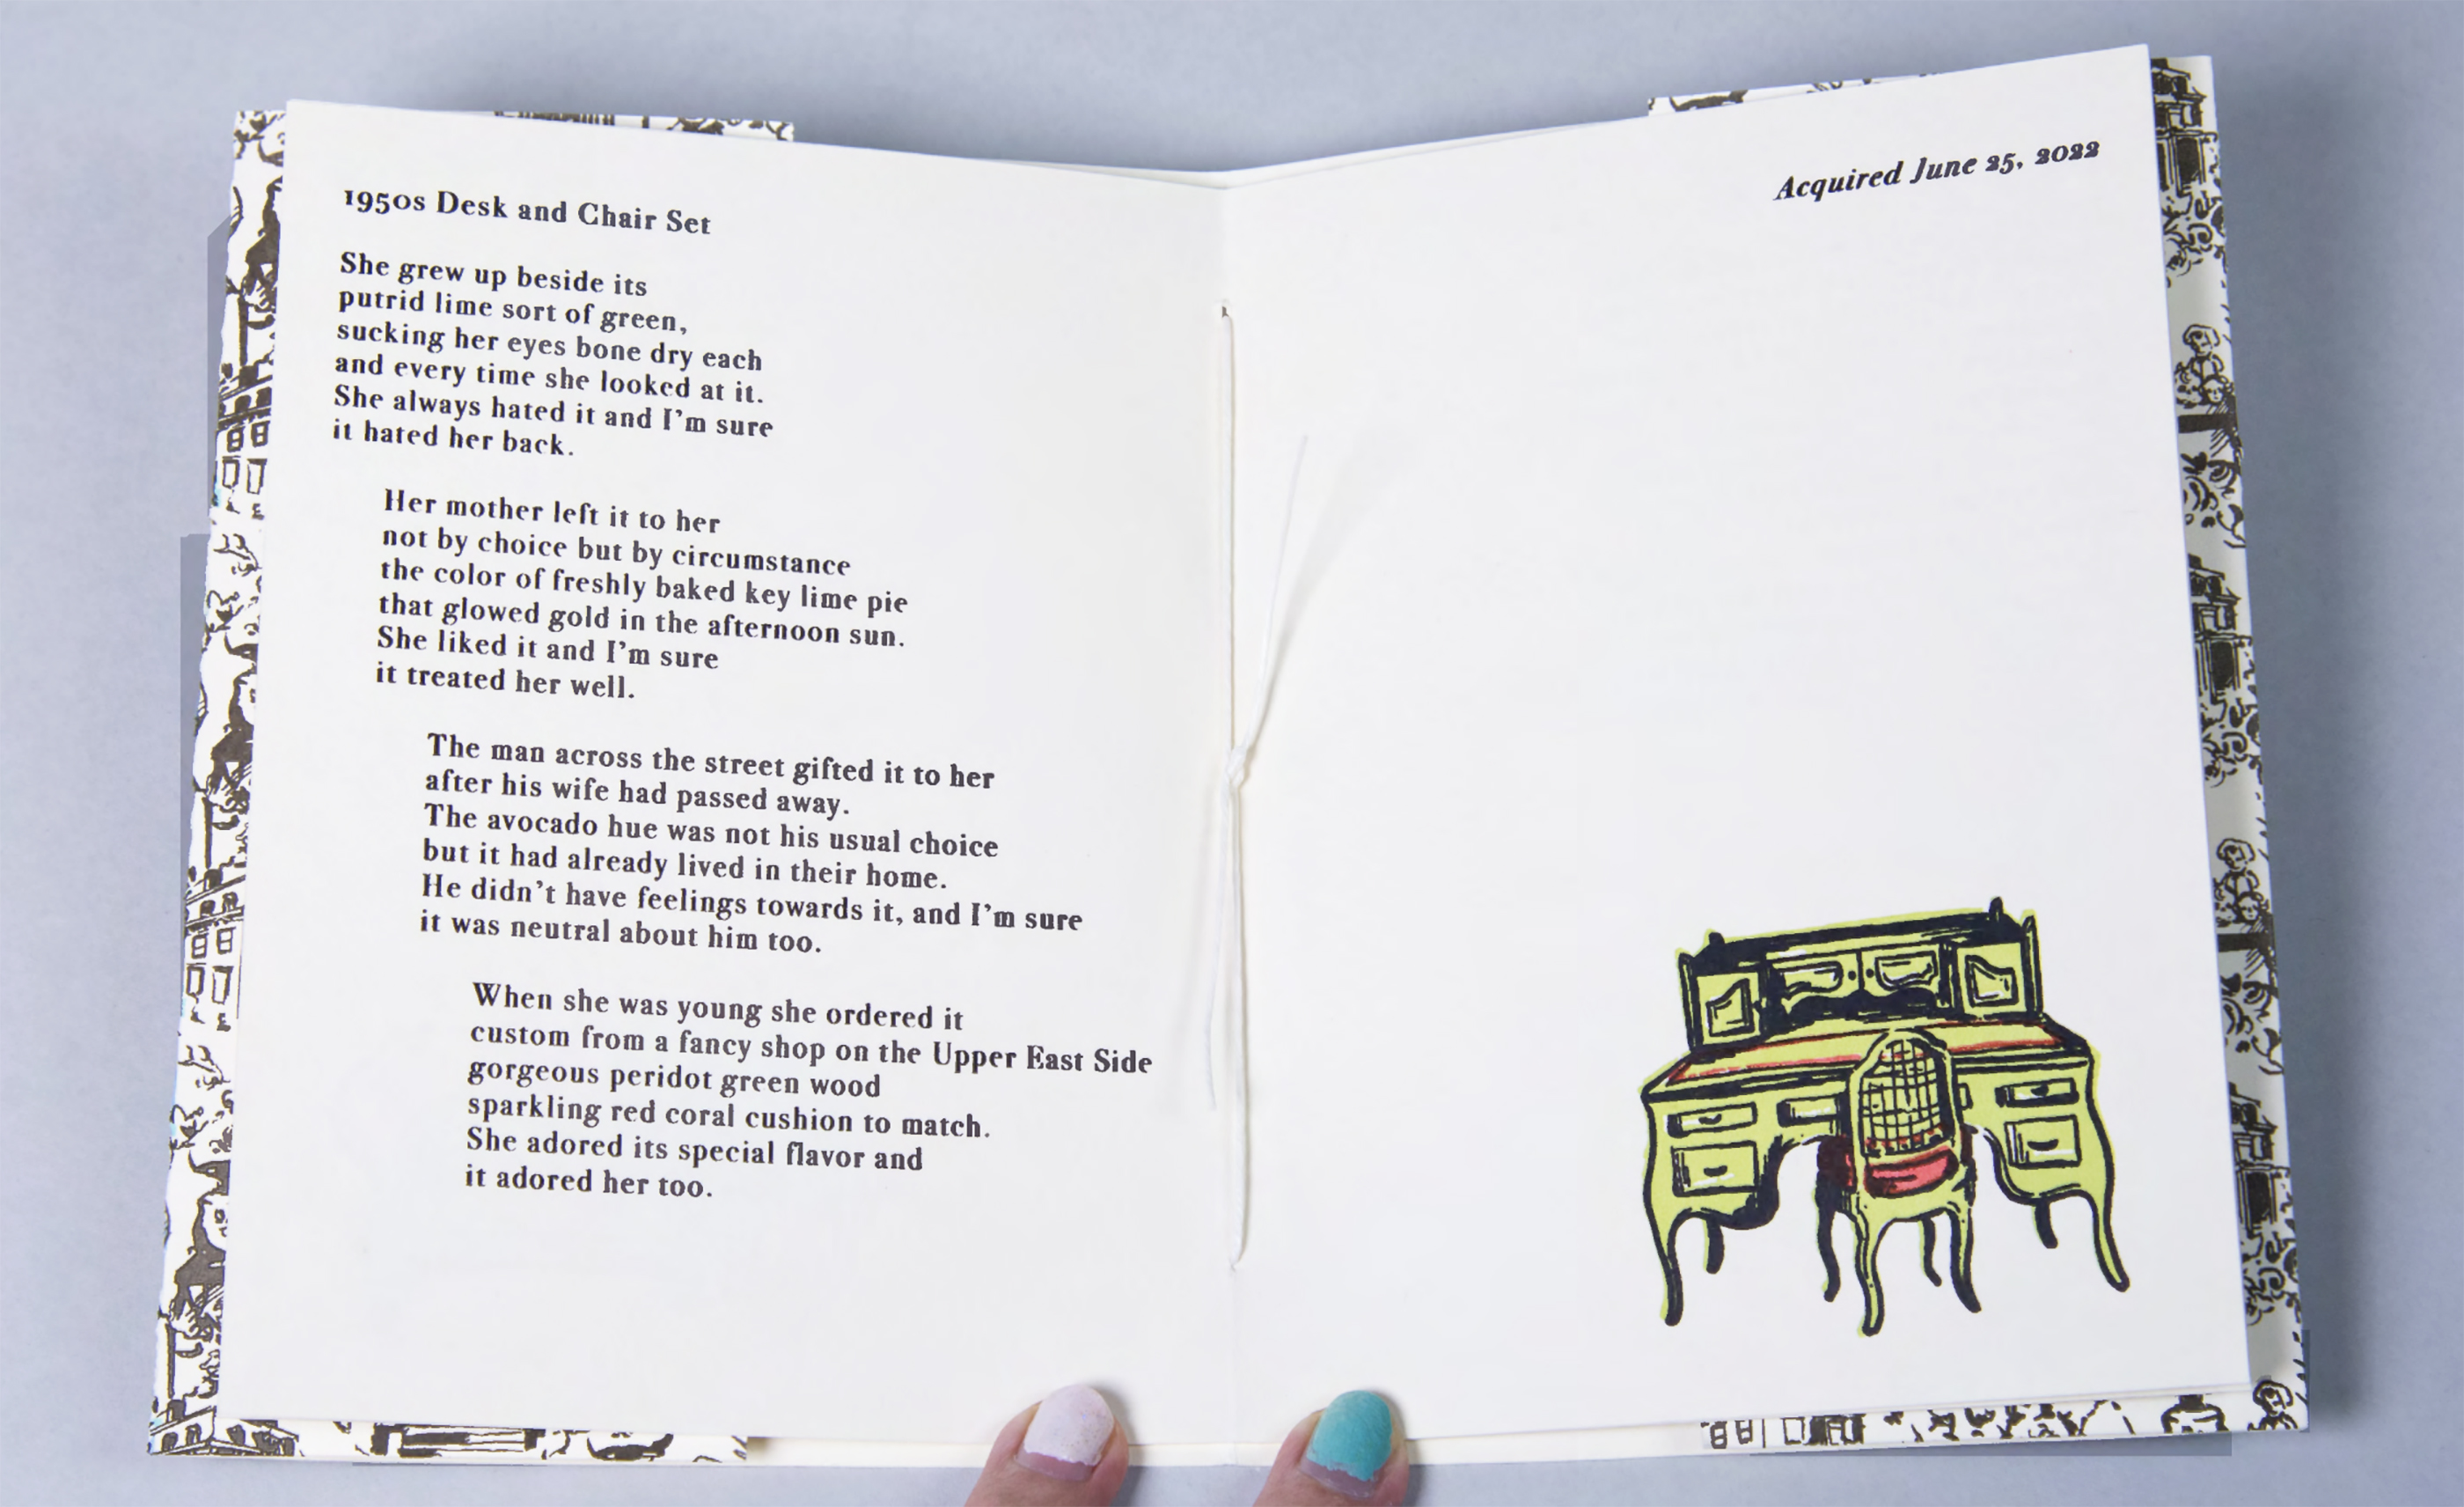 1950s Desk and Chair Set
She grew up beside its
putrid lime sort of green,
sucking her eyes bone dry each
and every time she looked at it.
She always hated it and I'm sure
it hated her back.
Her mother left it to her
not by choice but by circumstance
the color of freshly baked key lime pie
that glowed gold in the afternoon sun.
She liked it and I'm sure
it treated her well.
The man across the street gifted it to her
after his wife had passed away.
The avocado hue was not his usual choice
but it had already lived in their home.
He didn't have feelings towards it, and I'm sure
it was neutral about him too.
When she was young she ordered it
custom from a fancy shop on the Upper East Side
gorgeous peridot green wood
sparkling red coral cushion to match.
She adored its special flavor and
it adored her too.
Acquired June 25, 2022